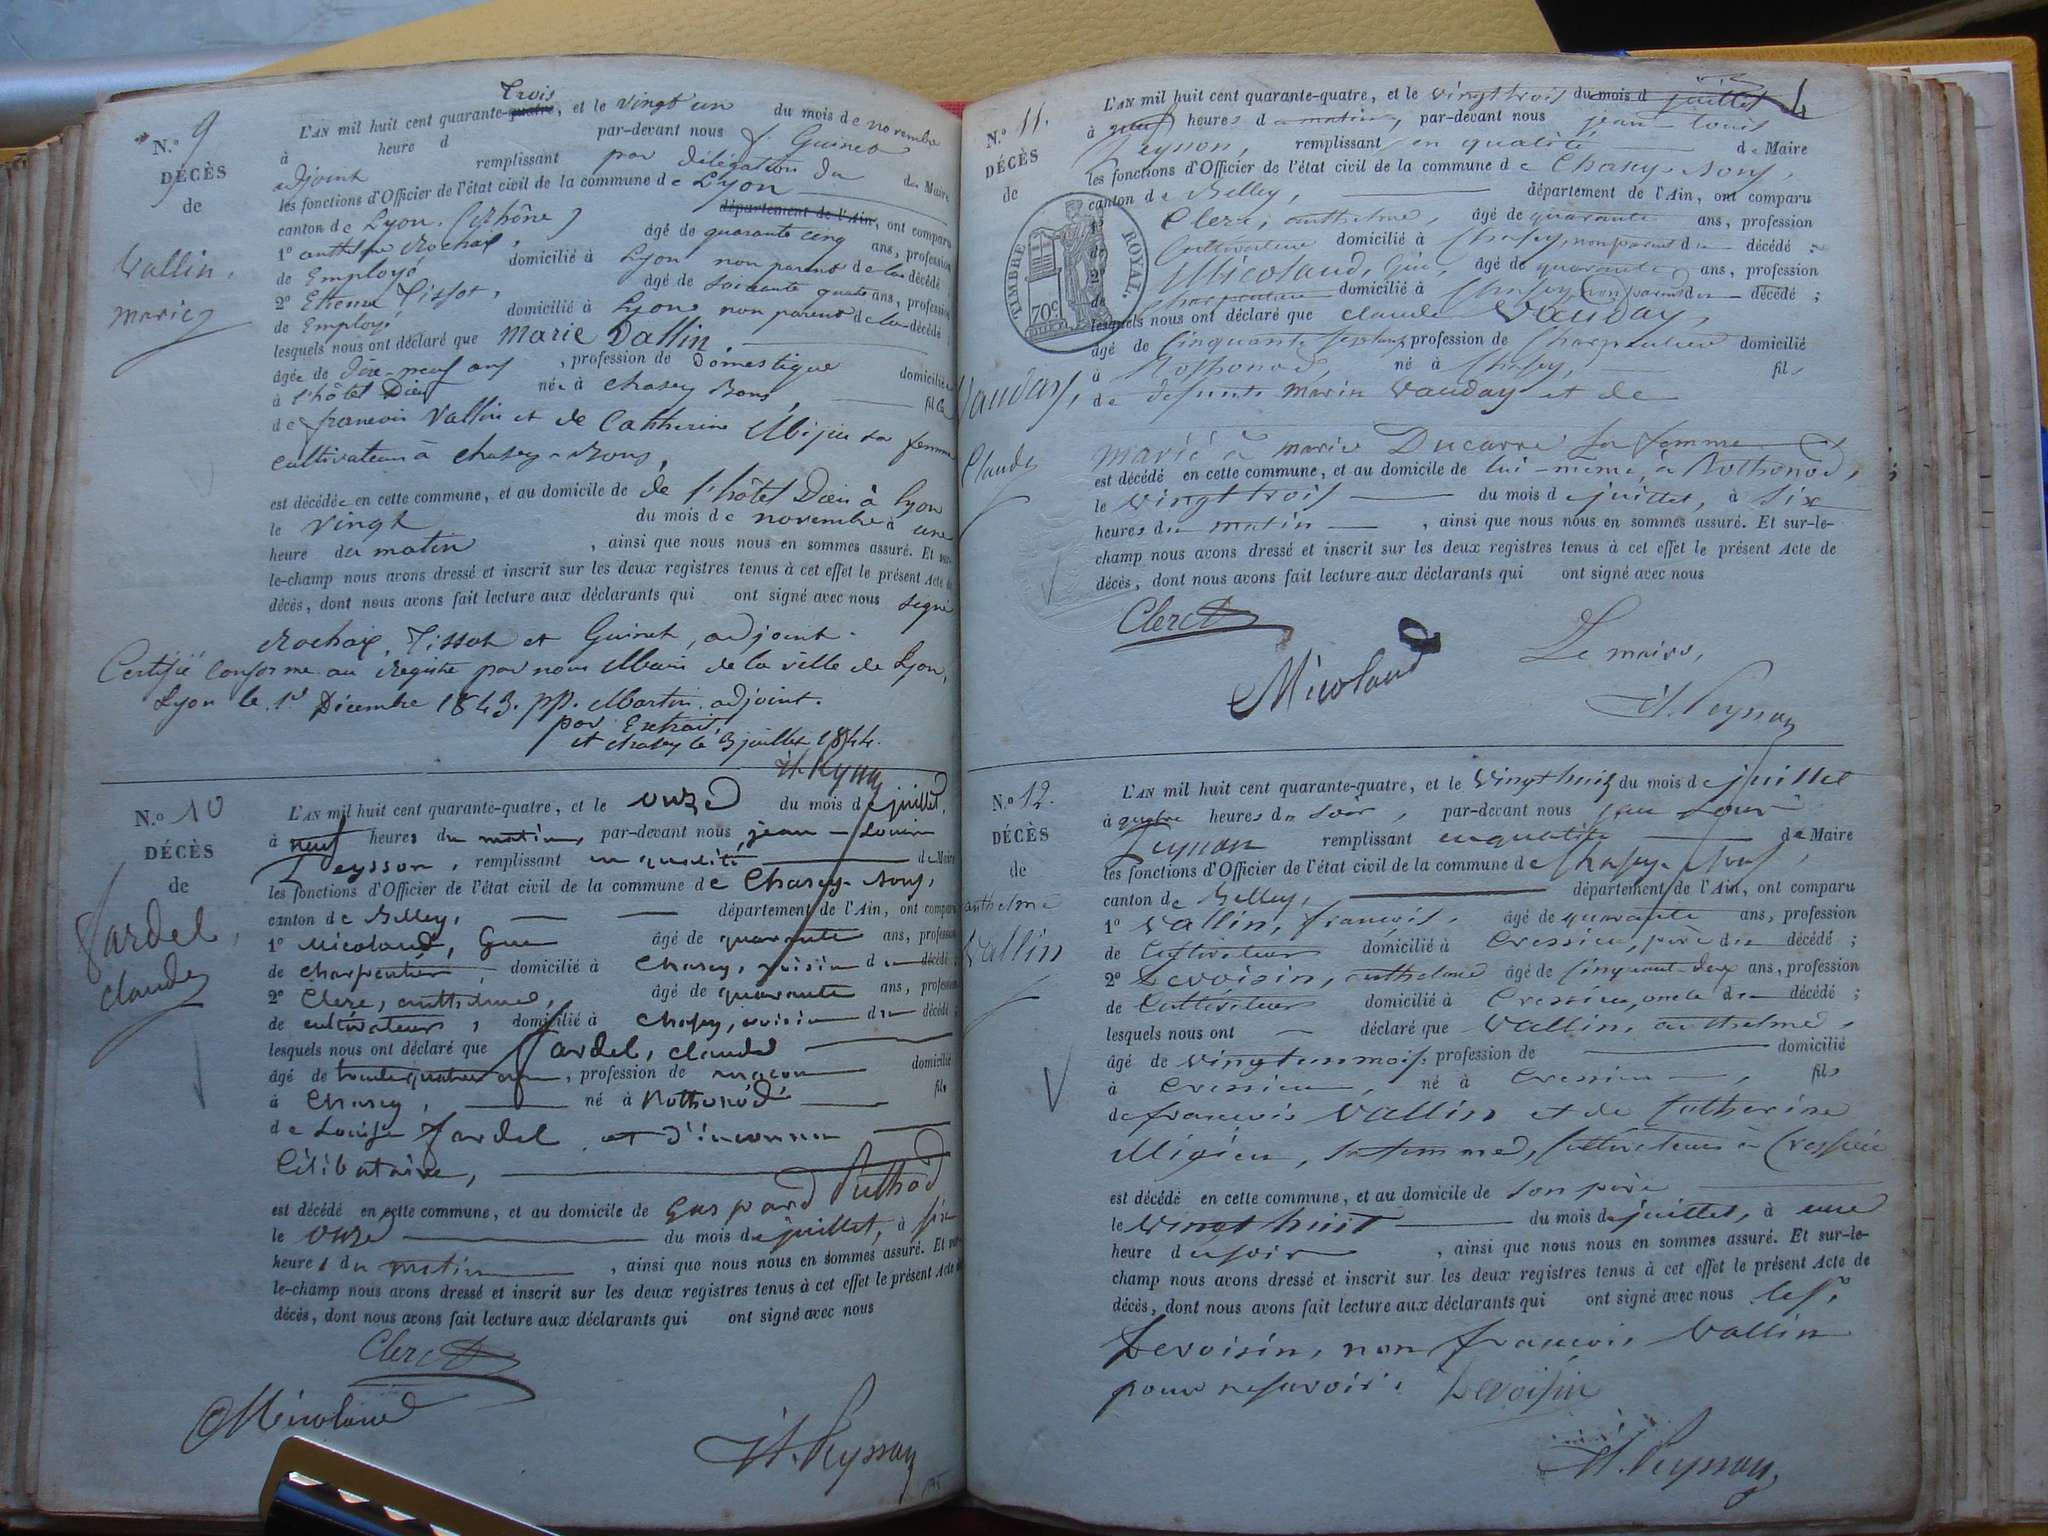 N.º 9
DÉCÈS
de
Vallin,
marie
L'AN mil huit cent quarante-quatre trois, et le vingt un du mois de novembre
à heure d par-devant nous f. Guinet
adjoint remplissant par délégation du de Maire
les fonctions d'Officier de l'état civil de la commune de Lyon
canton de Lyon. (Rhône) département de l'Ain, ont comparu
1º anthelme Rochaix, âgé de quarante cinq ans, profession
de Employé domicilié à Lyon non parent de la décédé
2º Etienne Tissot, âgé de soixante quatre ans, profession
de Employé domicilié à Lyon non parent de la décédé
lesquels nous ont déclaré que Marie Vallin
âgée de dix-neuf ans, profession de Domestique domiciliée
à l'hôtel Dieu née à Chasey Bons, fille
de francois Vallin et de Catherine Mijieu sa femme
cultivateurs à Chasey-Bons,
est décédée en cette commune, et au domicile de de l'hôtel Dieu à Lyon
le vingt du mois de novembre à une
heure du matin, ainsi que nous nous en sommes assuré. Et sur-
le-champ nous avons dressé et inscrit sur les deux registres tenus à cet effet le présent Acte de
décès, dont nous avons fait lecture aux déclarants qui ont signé avec nous signé
Rochaix, Tissot et Guinet, adjoint.
Certifié conforme au Registre par nous Maire de la ville de Lyon,
Lyon le 1er Décembre 1843. pp. Martin adjoint.
par Extrait,
et chasey le 3 juillet 1844.
J. L. Peysson
N.º 10
DÉCÈS
de
Jardel,
Claude
L'AN mil huit cent quarante-quatre, et le onze du mois de juillet,
à neuf heures du matin, par-devant nous jean-Louis
Peysson, remplissant en qualité de Maire
les fonctions d'Officier de l'état civil de la commune de Chasey-Bons,
canton de Belley, département de l'Ain, ont comparu
1º Micoland, Gui âgé de quarante ans, profession
de charpentier domicilié à Chasey, voisin du décédé ;
2º Clerc, anthelme, âgé de quarante ans, profession
de cultivateur, domicilié à Chasey, voisin du décédé ;
lesquels nous ont déclaré que Jardel, Claude
âgé de trente quatre ans, profession de maçon domicilié
à Chasey, né à Rothonod fils
de Louise Jardel et d'inconnu
Célibataire,
est décédé en cette commune, et au domicile de Gaspard Puthod
le onze du mois de juillet, à six
heures du matin, ainsi que nous nous en sommes assuré. Et sur-
le-champ nous avons dressé et inscrit sur les deux registres tenus à cet effet le présent Acte de
décès, dont nous avons fait lecture aux déclarants qui ont signé avec nous
Clerc
Micoland
J. L. Peysson
N.º 11.
DÉCÈS
de
Vauday,
Claude
TIMBRE ROYAL.
70c
L'AN mil huit cent quarante-quatre, et le vingt trois du mois d juillet
à neuf heures d matin, par-devant nous jean-louis
Peysson, remplissant en qualité de Maire
les fonctions d'Officier de l'état civil de la commune de Chasey-Bons,
canton de Belley, département de l'Ain, ont comparu
1º Clerc, anthelme, âgé de quarante ans, profession
de Cultivateur domicilié à Chasey, non parent du décédé ;
2º Micoland, Gui, âgé de quarante ans, profession
de charpentier domicilié à Chasey, non parent du décédé ;
lesquels nous ont déclaré que claude Vauday,
âgé de Cinquante sept ans, profession de Charpentier domicilié
à Rothonod, né à Chasey, fils
de defunts Marin Vauday et de
marié à marie Ducarre sa femme
est décédé en cette commune, et au domicile de lui-même, à Rothonod,
le vingt trois du mois de juillet, à six
heures du matin, ainsi que nous nous en sommes assuré. Et sur-le-
champ nous avons dressé et inscrit sur les deux registres tenus à cet effet le présent Acte de
décès, dont nous avons fait lecture aux déclarants qui ont signé avec nous
Clerc
Micoland
Le maire,
J. L. Peysson
N.º 12.
DÉCÈS
de
anthelme
Vallin
L'AN mil huit cent quarante-quatre, et le Vingt huit du mois de juillet
à quatre heures du soir, par-devant nous jean Louis
Peysson remplissant en qualité de Maire
les fonctions d'Officier de l'état civil de la commune de Chasey-Bons,
canton de Belley, département de l'Ain, ont comparu
1º Vallin, françois, âgé de quarante ans, profession
de Cultivateur domicilié à Cressieu, père du décédé ;
2º Devoisin, anthelme âgé de Cinquante-deux ans, profession
de Cultivateur domicilié à Cressieu, oncle du décédé ;
lesquels nous ont déclaré que Vallin, anthelme,
âgé de vingt un mois, profession de domicilié
à Cressieu, né à Cressieu, fils
de françois Vallin et de Catherine
Migieu, sa femme, Cultivateurs à Cressieu
est décédé en cette commune, et au domicile de son père
le vingt huit du mois de juillet, à une
heure du soir, ainsi que nous nous en sommes assuré. Et sur-le-
champ nous avons dressé et inscrit sur les deux registres tenus à cet effet le présent Acte de
décès, dont nous avons fait lecture aux déclarants qui ont signé avec nous
Devoisin, non françois Vallin
pour ne savoir. Devoisin
J. L. Peysson